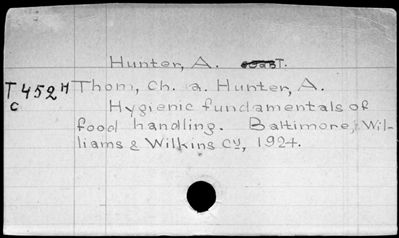 Hunter, A. T.
T452H Thom, Ch. a. Hunter, A.
C Hygienic fundamentals of
food handling. Baltimore, Wil-
liams & Wilkins Cy, 1924.